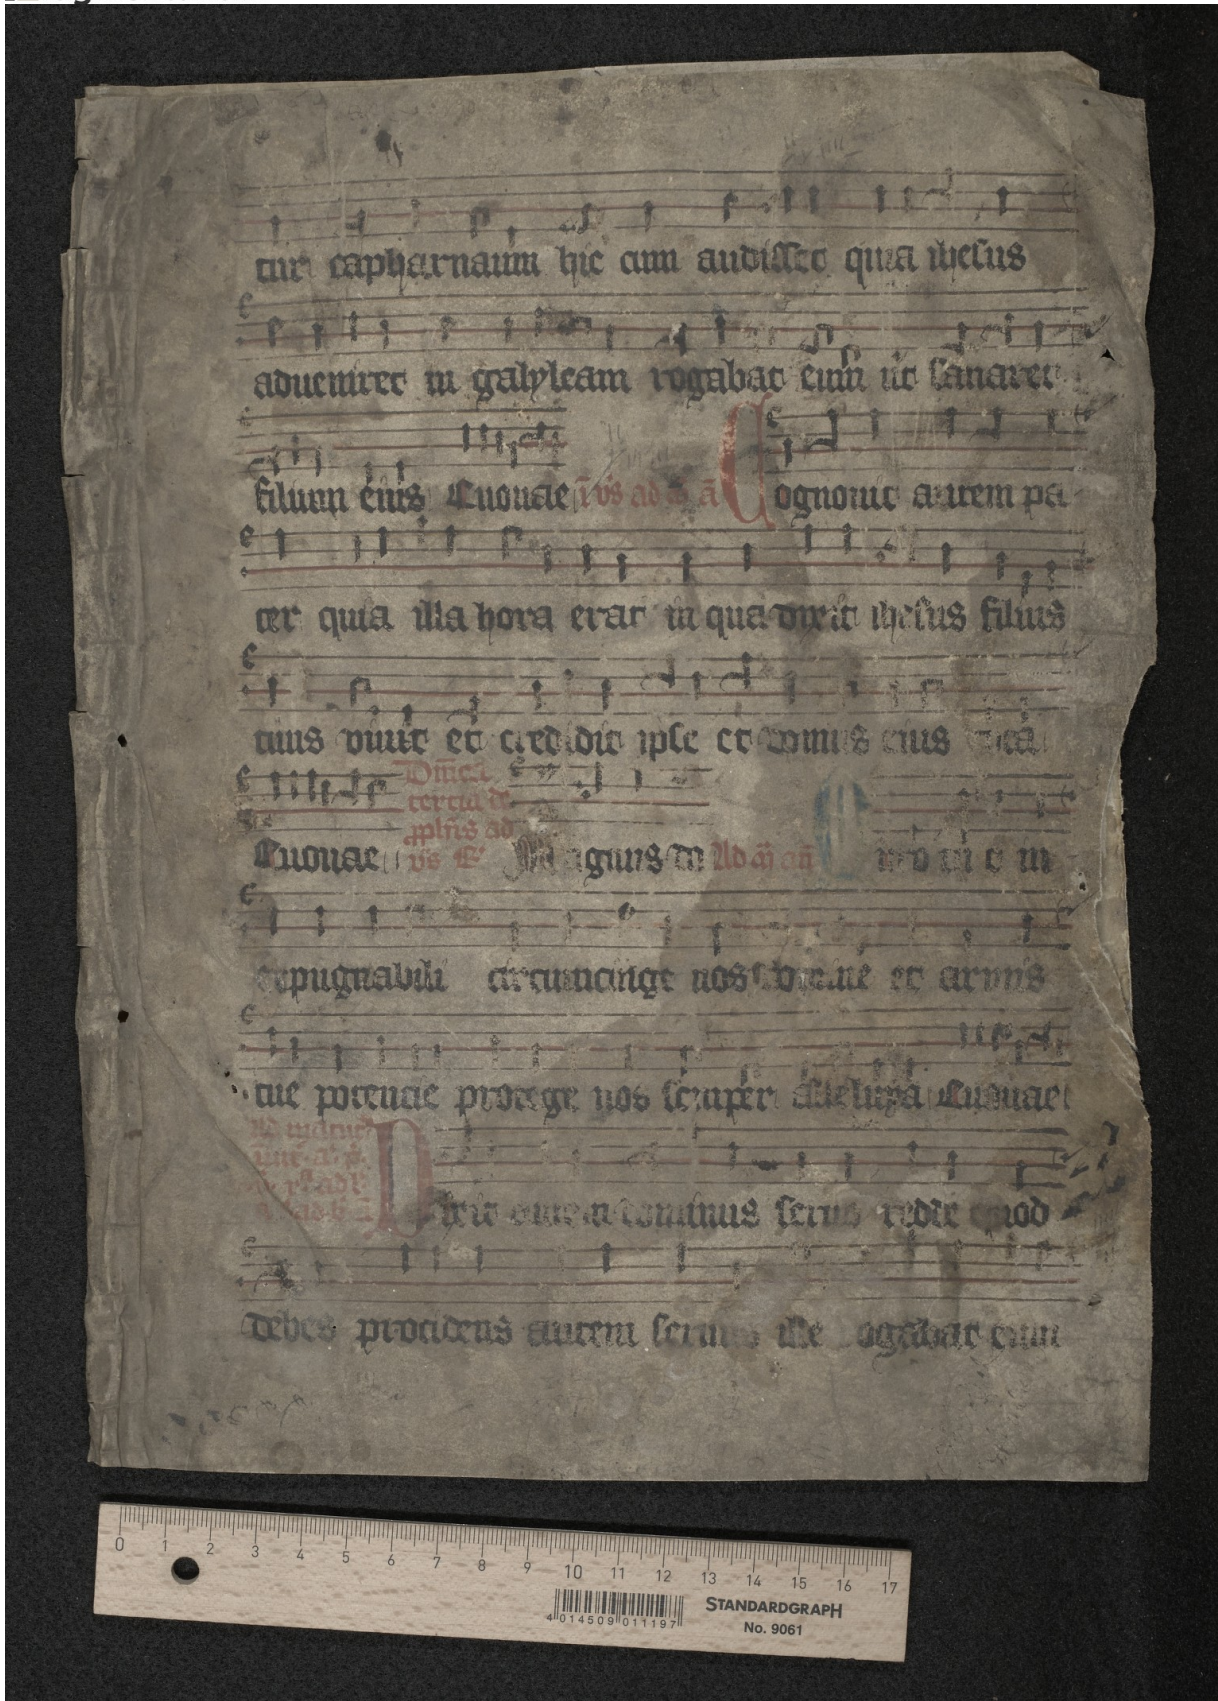 tur capharnaum hic cum audisset quia ihesus
adueniret in galyleam rogabat eum ut sanaret
filium eius Euouae ad Cognouit autem pa
ter quia illa hora erat in qua dixit ihesus filius
tuus viuit et credidit ipse et domus eius
Euouae Dn̄ica tercia ad vs Magnus do Ad m̄ an̄ muro tuo in
expugnabili circumcinge nos domine et armis
tue potencie protege nos semper alleluya Euouae
Dixit autem dominus seruo redde quod
debes procidens autem seruus ille rogabat eum
0 1 2 3 4 5 6 7 8 9 10 11 12 13 14 15 16 17
4 014509 011197
STANDARDGRAPH
No. 9061